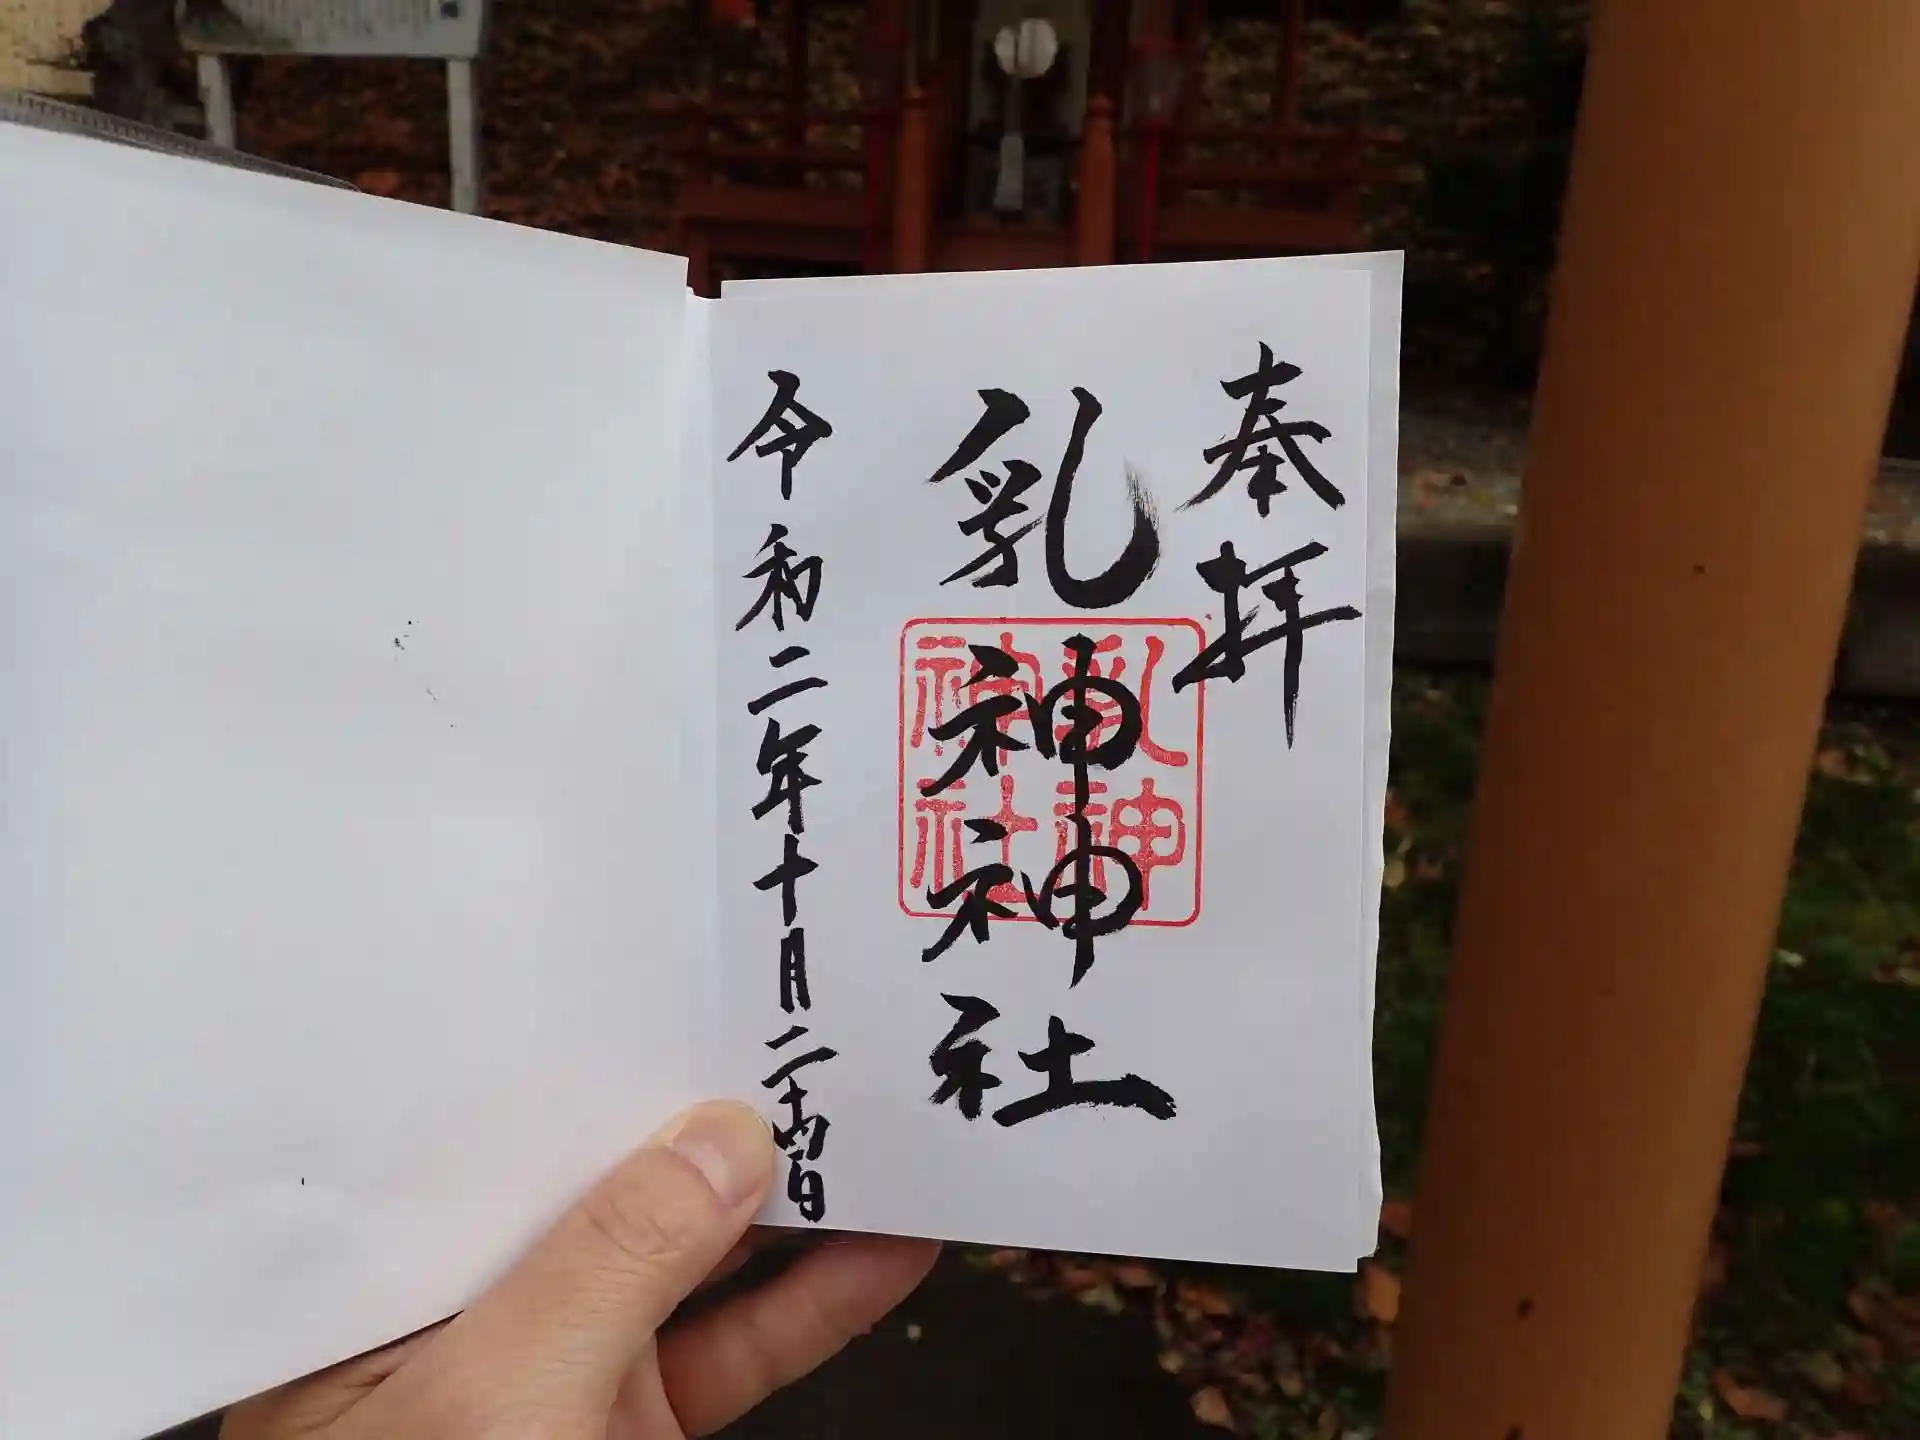 奉拝
乳神神社
乳神
神社
令和二年十月二十四日